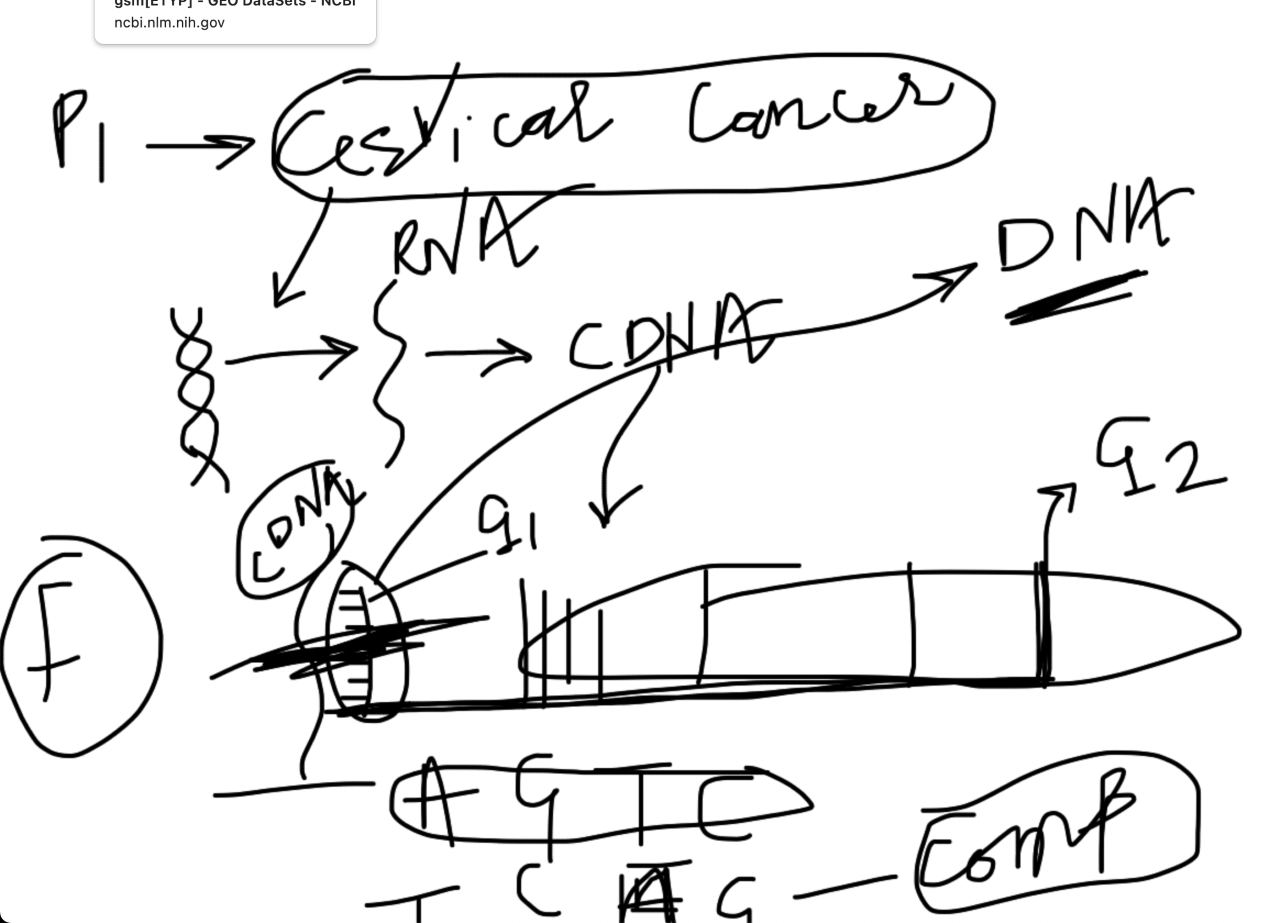 gsm[ETYP] - GEO DataSets - NCBI
ncbi.nlm.nih.gov
P1 → Cervical Cancer
RNA
DNA
CDNA
CDNA
g1
g2
F
A G T C
T C A G — Comp